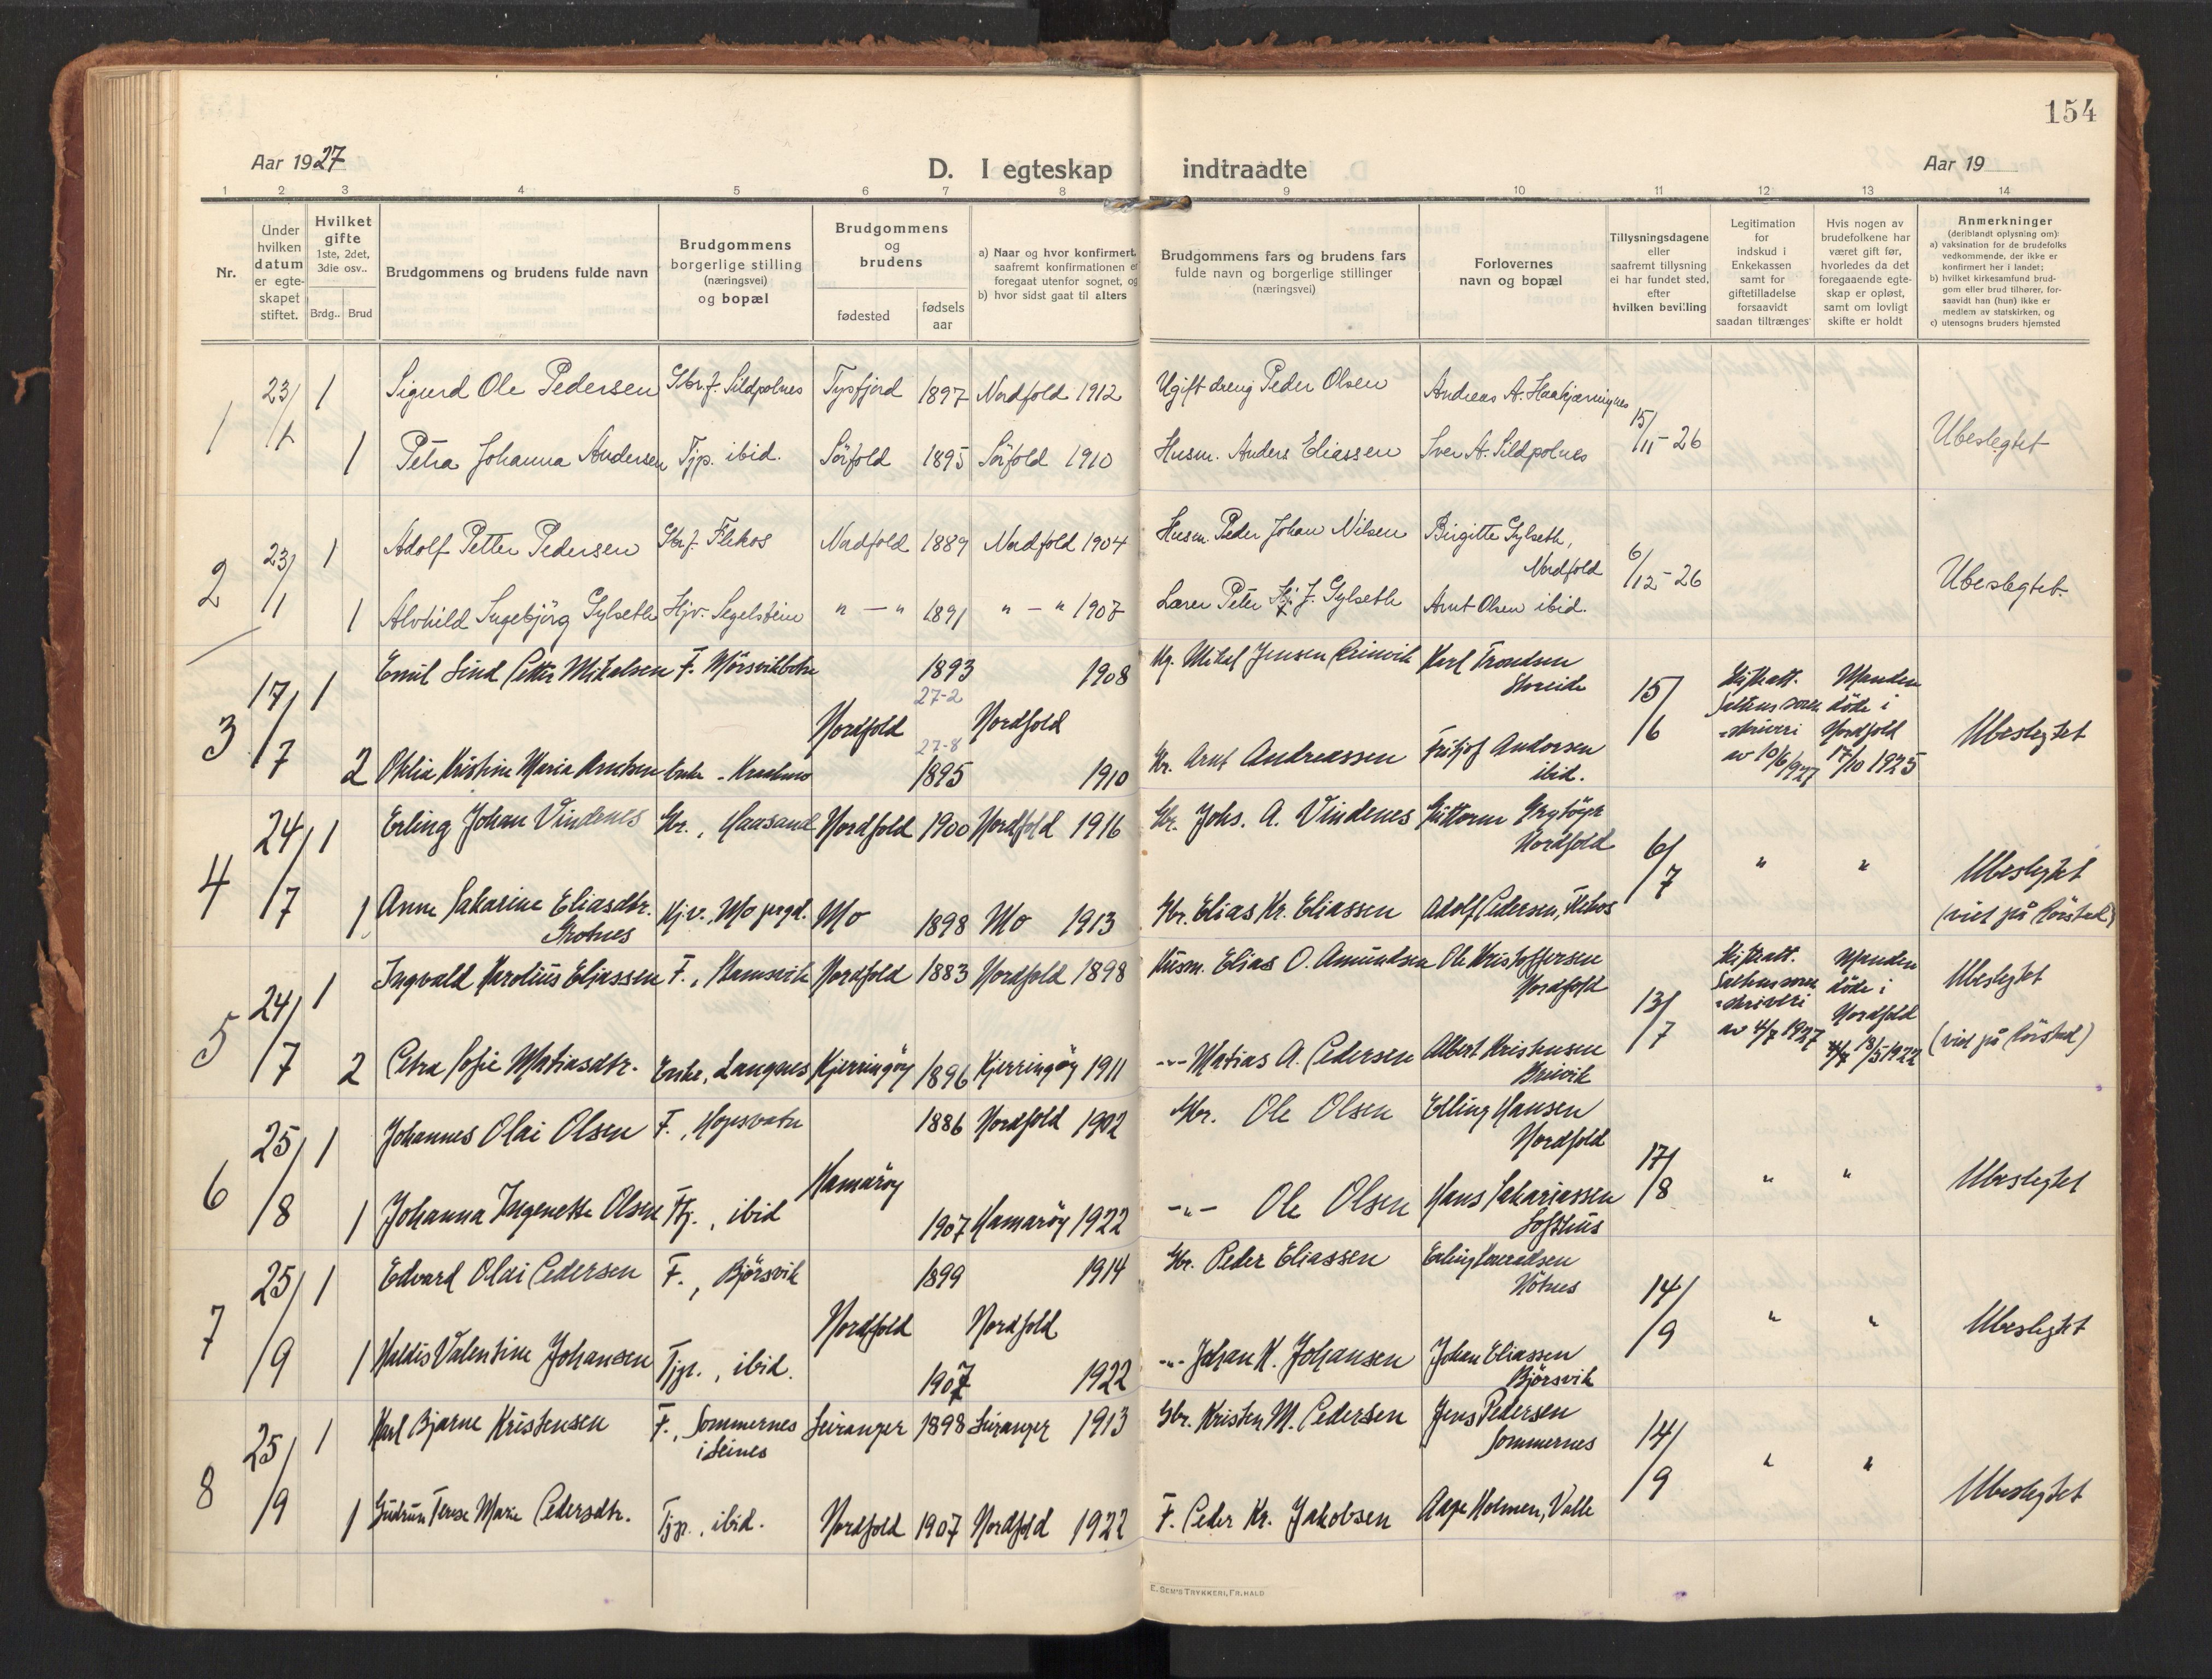 154
Aar 1927
D. I egteskap indtraadte
Aar 19
1 2 3 4 5 6 7 8 9 10 11 12 13 14
Nr.
Under hvilken datum er egteskapet stiftet.
Hvilket gifte 1ste, 2det, 3die osv..
Brdg.. Brud
Brudgommens og brudens fulde navn
Brudgommens borgerlige stilling (næringsvei) og bopæl
Brudgommens og brudens
fødested
fødsels aar
a) Naar og hvor konfirmert, saafremt konfirmationen er foregaat utenfor sognet, og
b) hvor sidst gaat til alters
Brudgommens fars og brudens fars fulde navn og borgerlige stillinger (næringsvei)
Forlovernes navn og bopæl
Tillysningsdagene eller saafremt tillysning ei har fundet sted, efter hvilken bevilling
Legitimation for indskud i Enkekassen samt for giftetilladelse forsaavidt saadan tiltrænges
Hvis nogen av brudefolkene har været gift før, hvorledes da det foregaaende egteskap er opløst, samt om lovligt skifte er holdt
Anmerkninger
(deriblandt oplysning om):
a) vaksination for de brudefolks vedkommende, der ikke er konfirmert her i landet;
b) hvilket kirkesamfund brudgom eller brud tilhører, forsaavidt han (hun) ikke er medlem av statskirken, og
c) utensogns bruders hjemsted
1 23/1 1 Sigurd Ole Pedersen Gbr.f. Sildpolnes Tysfjord 1897 Nordfold 1912 Ugift dreng Peder Olsen Andreas A. 15/11-26 Ubeslegtet
1 Petra Johanna Andersen Tjp. ibid. Sörfold 1895 Sörfold 1910 Husm. Anders Eliassen Iver A. Sildpolnes
2 23/1 1 Adolf Petter Pedersen Gbr.f. Flekos Nordfold 1889 Nordfold 1904 Husm. Peder Johan Nilsen Birgitte Gylseth, Nordfold 6/12-26 Ubeslegtet.
1 Alvhild Ingebjörg Gylseth Hjv. Segelstein " — " 1891 " — " 1907 Lærer Peter J. Gylseth Arnt Olsen ibid.
3 17/7 1 Emil Lind Petter Mikalsen F. Mörsvikbotn Nordfold 1893 27-2 Nordfold 1908 Mikal Jensen Karl Trondsen 15/6 Skifteatt. av 10/6 1927 Manden döde i Nordfold 17/10 1925 Ubeslegtet
2 Kristine Maria Arntsen Enke 27-8 1895 1910 Gbr. Arnt Andreassen Fritjof Andorsen ibid.
4 24/7 1 Erling Johan Vindenes Gbr., Haasand Nordfold 1900 Nordfold 1916 Gbr. Johs. A. Vindenes Guttorm Nordfold 6/7 " " Ubeslegtet
1 Anna Sakarine Eliasdtr. Hjv., Mo prgd. Mo 1898 Mo 1913 Gbr. Elias Kr. Eliassen Adolf Pedersen, Flekos (viet på Rörstad)
5 24/7 1 Ingvald Karolius Eliassen F., Nordfold 1883 Nordfold 1898 Husm. Elias O. Amundsen Ole Kristoffersen Nordfold 13/7 Skifteatt. av 4/7 1927 Manden döde i Nordfold 18/5 1922 Ubeslegtet
2 Petra Sofie Matiasdtr. Enke, Langnes Kjerringöy 1896 Kjerringöy 1911 -"- Matias A. Pedersen Albert Kristensen Breivik (viet på Rörstad)
6 25/8 1 Johannes Olai Olsen F., Hopsvatn Hamaröy 1886 Nordfold 1902 Gbr. Ole Olsen Elling Hansen Nordfold 17/8 " " Ubeslegtet
1 Johanna Ingenette Olsen Tj., ibid 1907 Hamaröy 1922 -"- Ole Olsen Hans Sakariassen Lofthus
7 25/9 1 Edvard Olai Pedersen F., Björsvik Nordfold 1899 Nordfold 1914 Gbr. Peder Eliassen Erling 14/9 " " Ubeslegtet
1 Haldis Valentine Johansen Tjp., ibid. 1907 1922 -"- Johan K. Johansen Johan Eliassen Björsvik
8 25/9 1 Karl Bjarne Kristensen F., Sommernes i Leines Leiranger 1898 Leiranger 1913 Gbr. Kristen M. Pedersen Jens Pedersen Sommernes 14/9 " " Ubeslegtet
1 Gudrun Terese Marie Pedersdtr. Tjp., ibid. Nordfold 1907 Nordfold 1922 F. Peder Kr. Jakobsen Aage Holmen, Valle
E. SEM'S TRYKKERI, FR.HALD